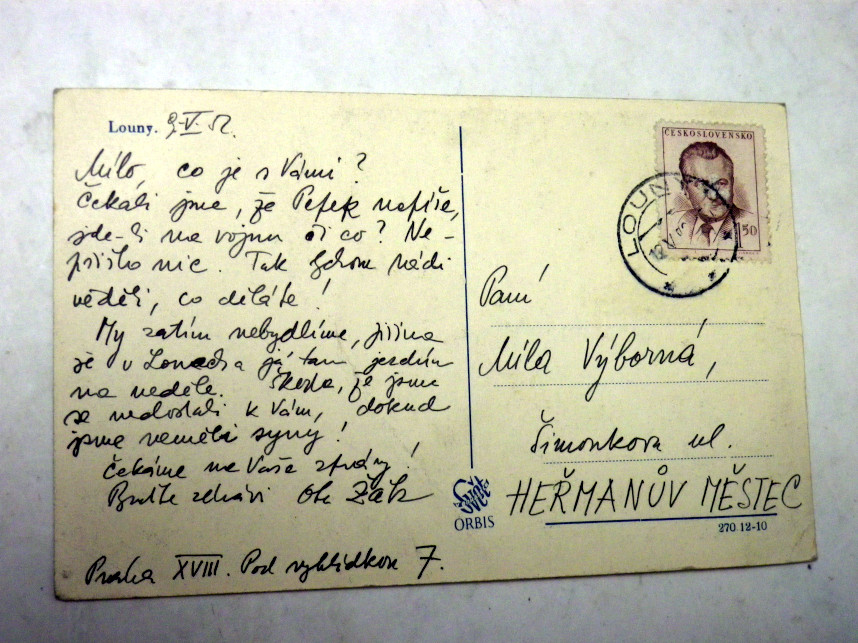 Louny. 9.V.52.
Mílo, co je s Vámi?
Čekáli jsme, že Pepek napíše,
jde-li na vojnu či co? Ne-
přišlo nic. Tak bychom rádi
věděli, co děláte!
My zatím nebydlíme, Jiřina
je v Lounech a já tam jezdím
na neděle. Škoda, že jsme
se nedostali k Vám, dokud
jsme neměli syny!
Čekáme na Vaše zprávy!
Buďte zdrávi
Praha XVIII. Pod vyhlídkou 7.
ČESKOSLOVENSKO
1.50
LOUNY
Paní
Míla Výborná,
Šimonkova ul.
HEŘMANŮV MĚSTEC
Svět
ORBIS
270.12-10